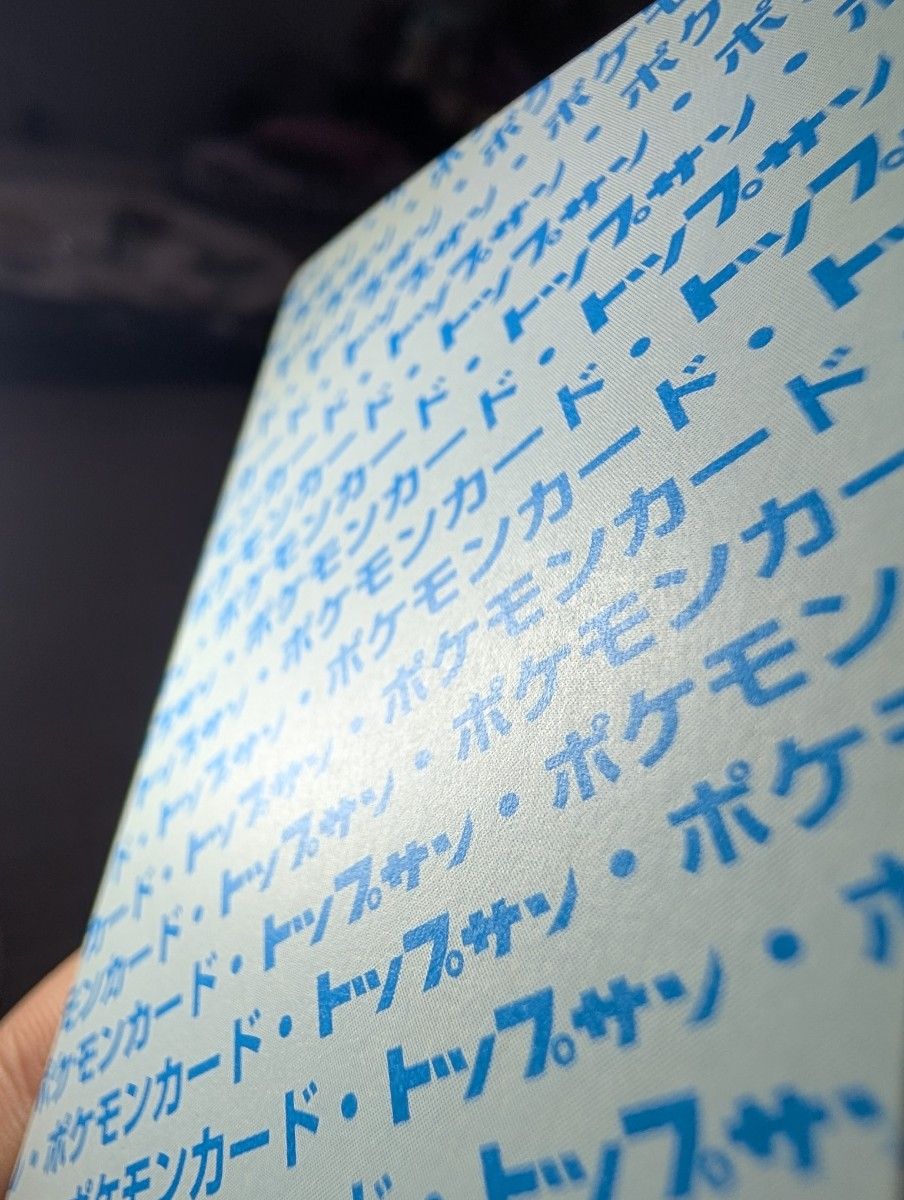 トップサン・ポケ
ド・トップサン・ポケモ
カード・トップサン・ポケ
ンカード・トップサン・ポケ
モンカード・トップサン・ポ
ポケモンカード・トップサン・ポ
・ポケモンカード・トップサン
サン・ポケモンカード・トップ
トップサン・ポケモンカード・トッ
ド・トップサン・ポケモンカード
カード・トップサン・ポケモンカー
モンカード・トップサン・ポケモン
ポケモンカード・トップサン・ポケモ
ン・ポケモンカード・トップサン・ポ
ポケモンカード・トップサン・
ド・トップサン・